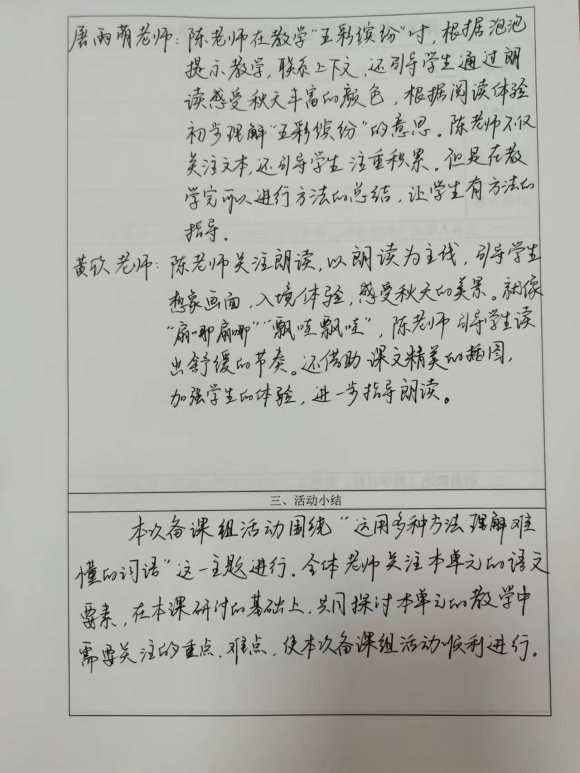 唐雨萌老师：陈老师在教学“五彩缤纷”时，根据泡泡
提示教学，联系上下文，还引导学生通过朗
读感受秋天丰富的颜色，根据阅读体验
初步理解“五彩缤纷”的意思。陈老师不仅
关注文本，还引导学生注重积累。但是在教
学完可以进行方法的总结，让学生有方法的
指导。
黄欣老师：陈老师关注朗读，以朗读为主线，引导学生
想象画面，入境体验，感受秋天的美景。就像
“扇哪扇哪”“飘哇飘哇”，陈老师引导学生读
出舒缓的节奏。还借助课文精美的插图，
加强学生的体验，进一步指导朗读。
三、活动小结
本次备课组活动围绕“运用多种方法理解难
懂的词语”这一主题进行。全体老师关注本单元的语文
要素，在本课研讨的基础上，共同探讨本单元的教学中
需要关注的重点、难点，使本次备课组活动顺利进行。